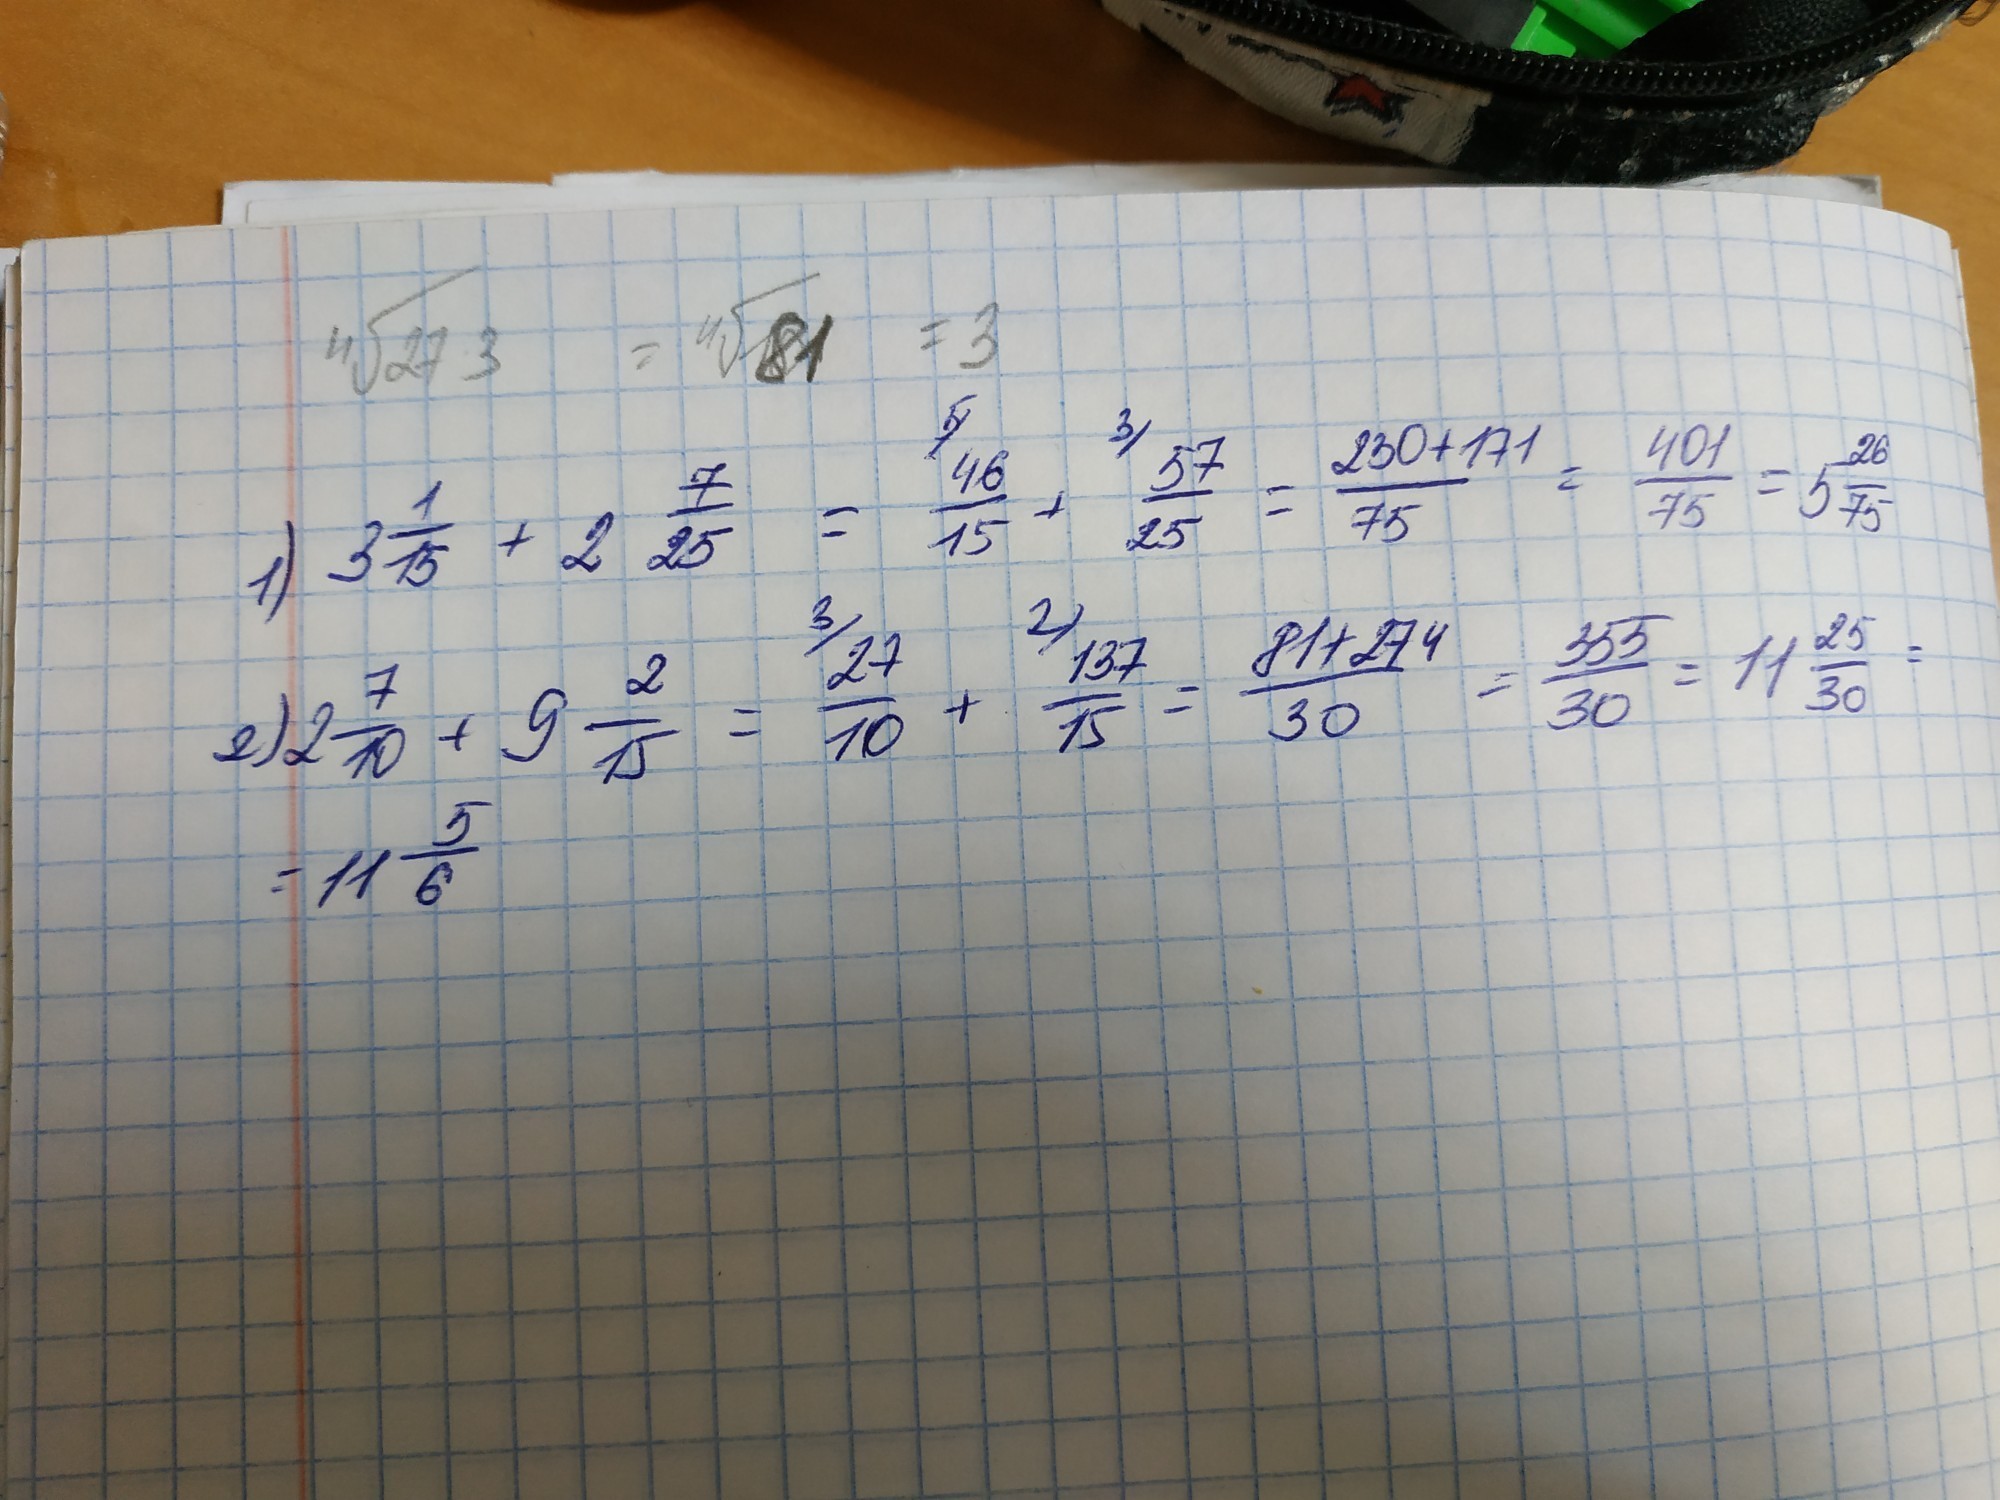 ⁴√27·3 = ⁴√81 = 3
1) 3 1/15 + 2 7/25 = 5/ 46/15 + 3/ 57/25 = 230+171/75 = 401/75 = 5 26/75
2) 2 7/10 + 9 2/15 = 3/ 27/10 + 2/ 137/15 = 81+274/30 = 355/30 = 11 25/30 =
= 11 5/6